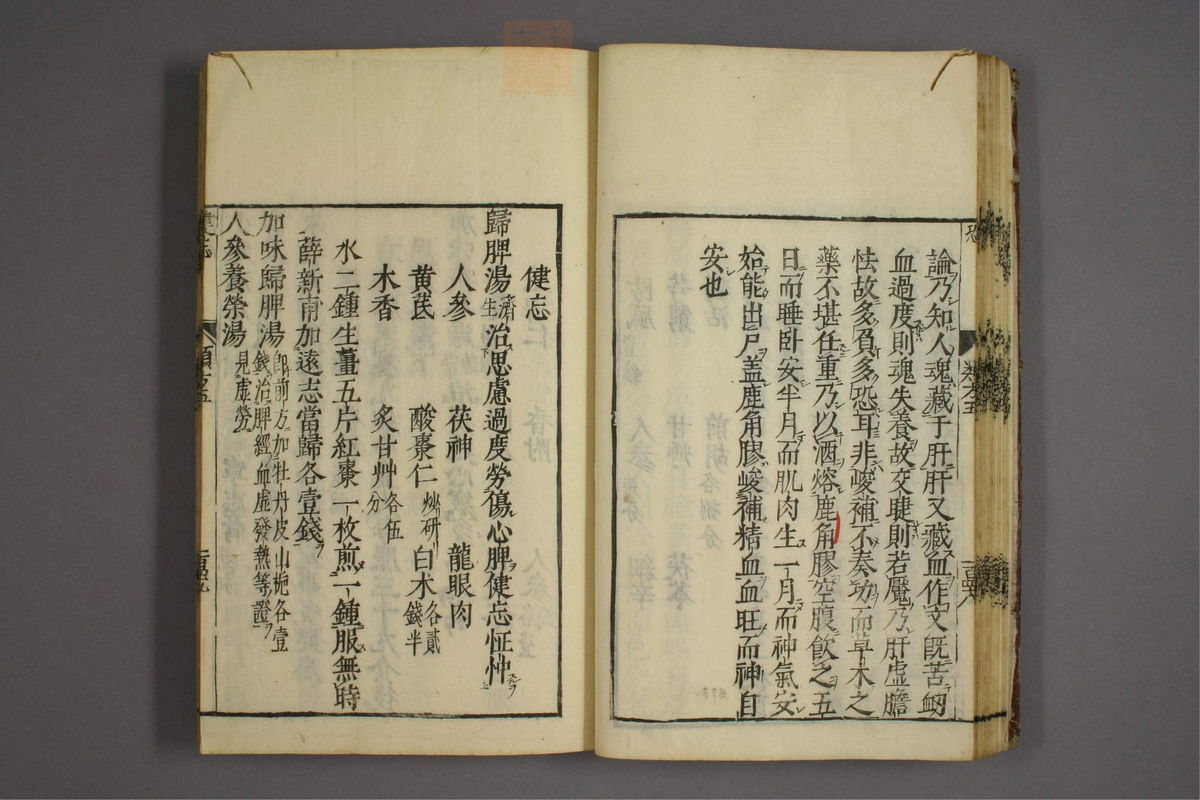 論乃知人魂藏于肝肝又藏血作文既苦衂
血過度則魂失養故交睫則若魘乃肝虛膽
怯故多負多恐耳非峻補不奏功而草木之
藥不堪任重乃以酒熔鹿角膠空腹飲之五
日而睡卧安半月而肌肉生一月而神氣安
始能出戶盖鹿角膠峻補精血血旺而神自
安也
健忘
歸脾湯濟生治思慮過度勞傷心脾健忘怔忡
人參 茯神 龍眼肉
黃芪 酸棗仁炒研 白术各貳錢半
木香 炙甘艸各伍分
水二鍾生薑五片紅棗一枚煎一鍾服無時
薛新甫加遠志當歸各壹錢
加味歸脾湯即前方加牡丹皮山梔各壹錢治脾經血虛發熱等證
人參養榮湯見虛勞